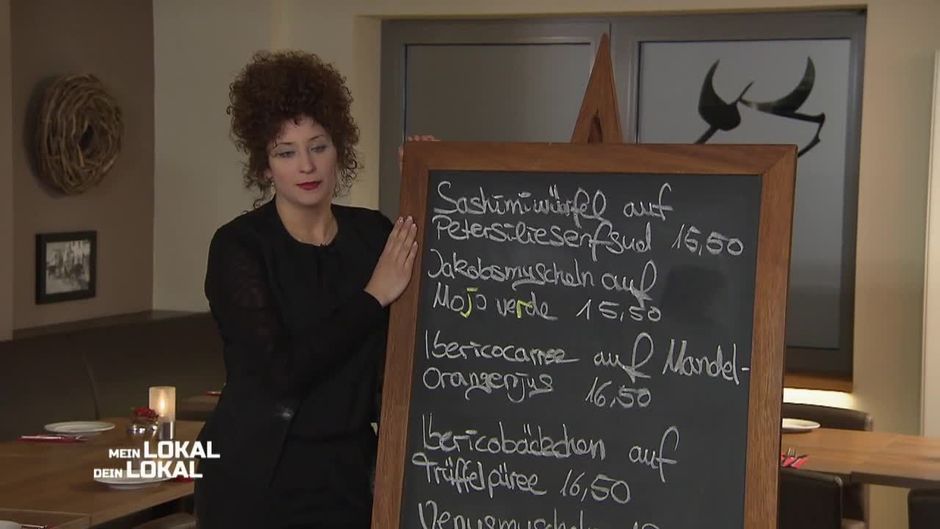 Sashimiwürfel auf
Petersiliesenfsud 15,50
Jakobsmuscheln auf
Mojo verde 15,50
Ibericocarree auf Mandel-
Orangenjus 16,50
Ibericobäckchen auf
Trüffelpüree 16,50
Venusmuscheln
MEIN LOKAL
DEIN LOKAL